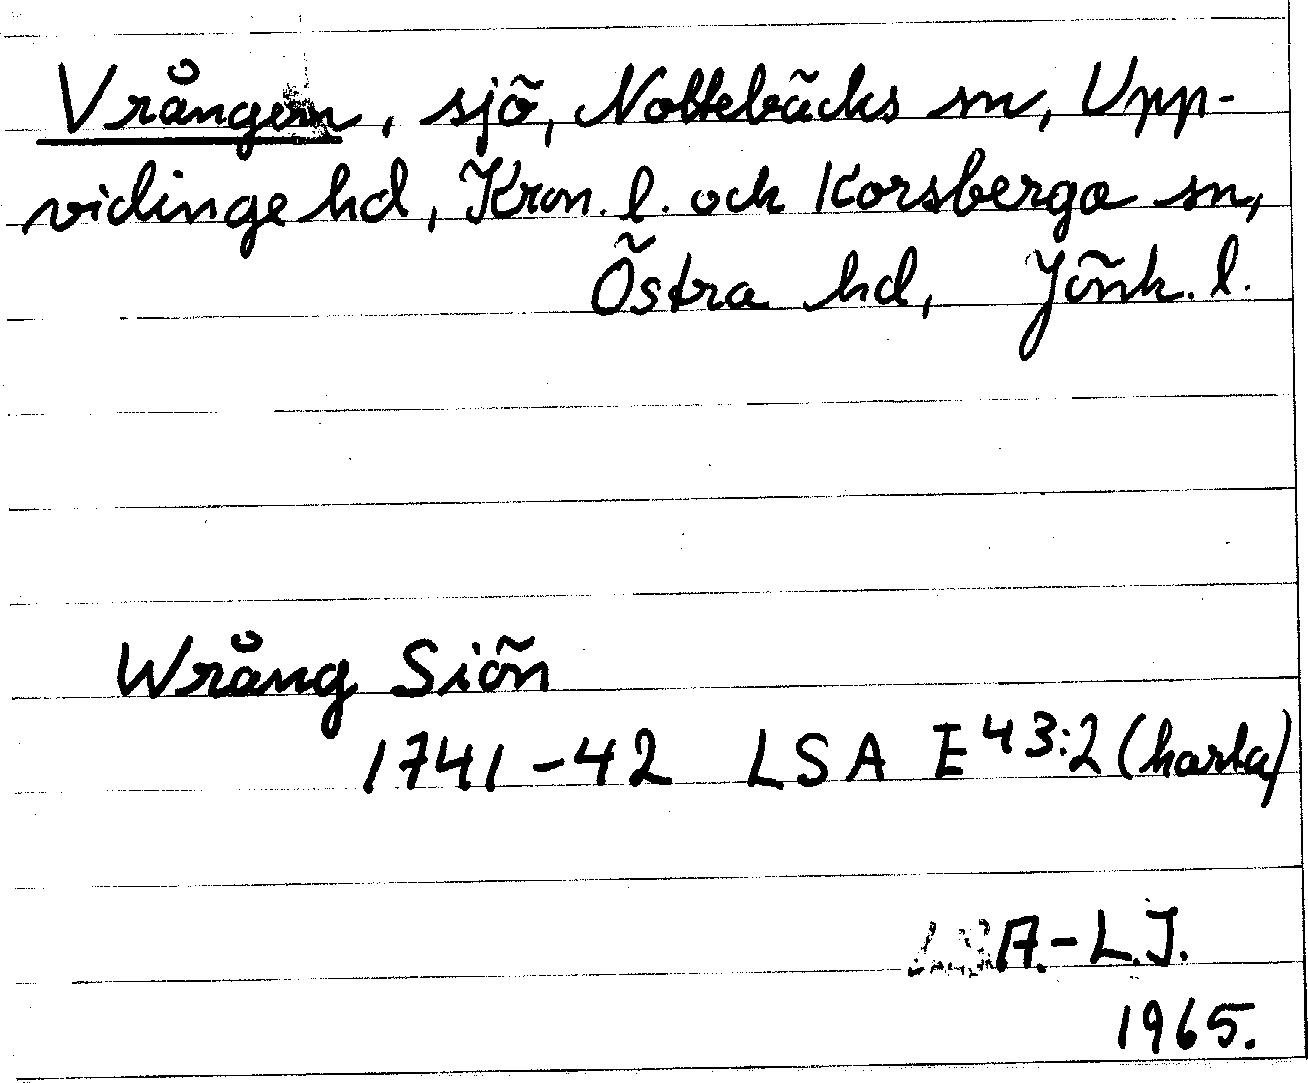 Vrången, sjö, Nottebäcks sn, Upp-
vidinge hd, Kron. l. och Korsberga sn,
Östra hd, Jönk. l.
Wrång Siön
1741-42 LSA E 43:2 (karta)
A.-L.J.
1965.